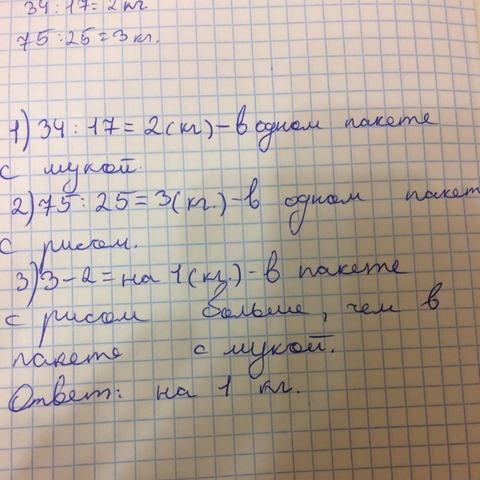 34 : 17 = 2 кг.
75 : 25 = 3 кг.
1) 34 : 17 = 2 (кг) - в одном пакете
с мукой.
2) 75 : 25 = 3 (кг.) - в одном пакет
с рисом.
3) 3 - 2 = на 1 (кг.) - в пакете
с рисом больше, чем в
пакете с мукой.
Ответ: на 1 кг.